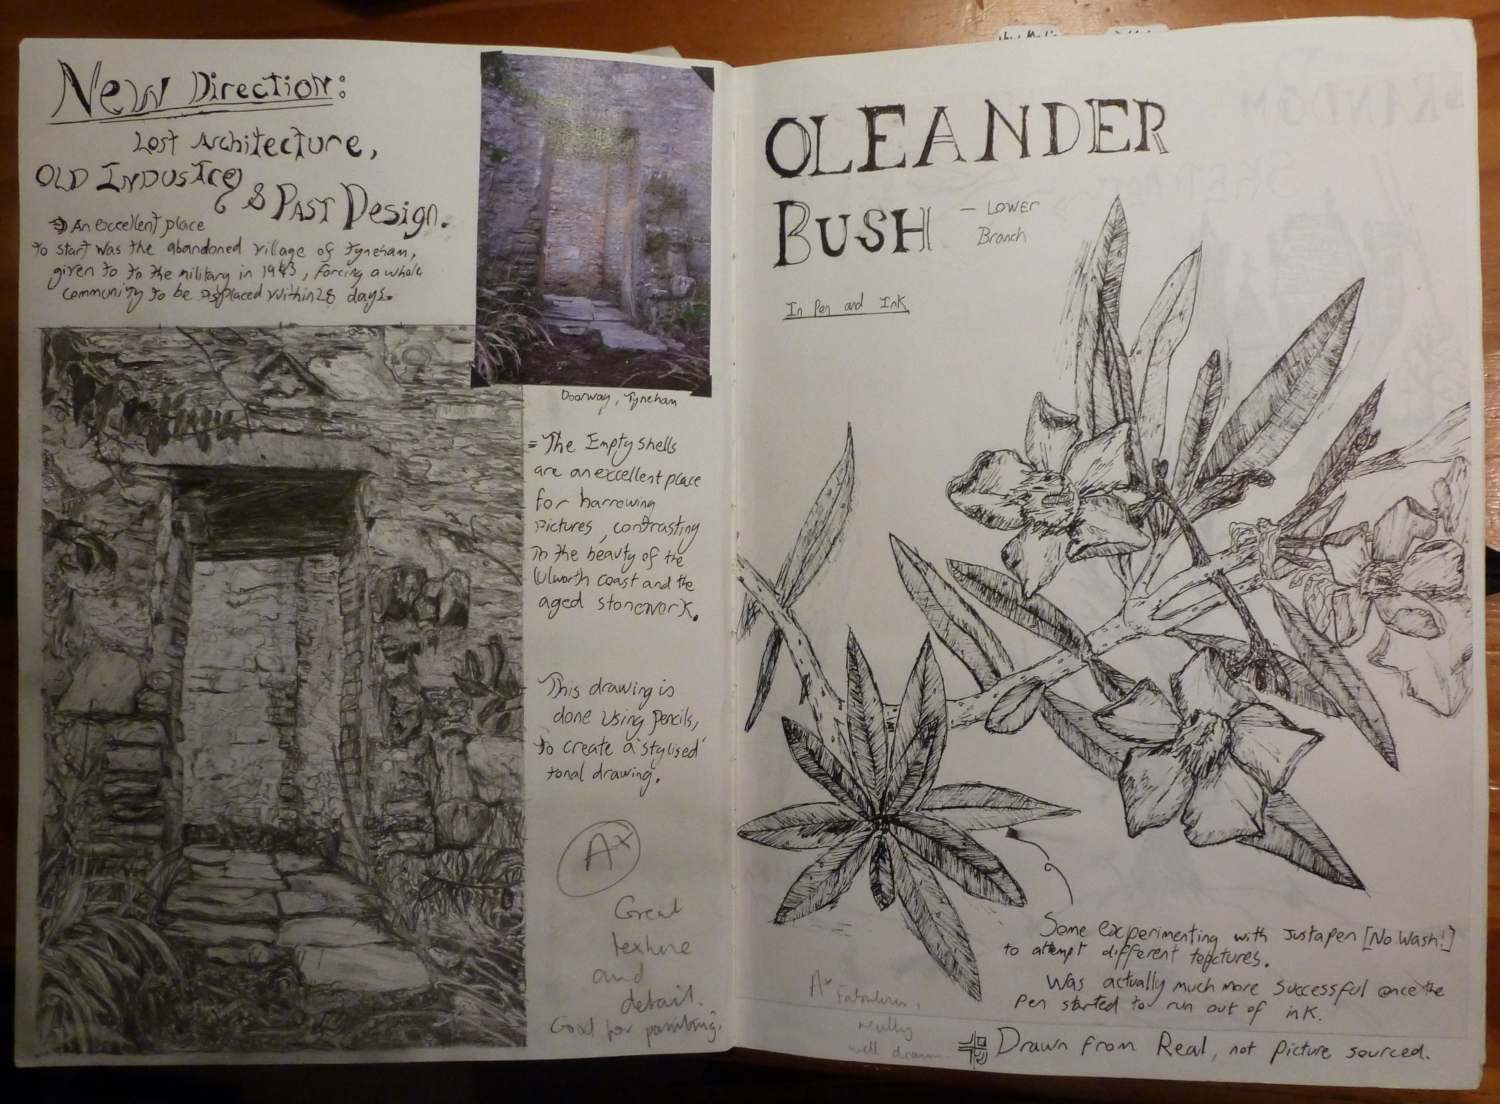 New Direction:
Lost Architecture,
OLD INDUSTRY
& PAST Design.
An excellent place
to start was the abandoned village of Tyneham,
given to to the military in 1943, forcing a whole
community to be displaced within 28 days.
Doorway, Tyneham
The Empty shells
are an excellent place
for harrowing
pictures, contrasting
in the beauty of the
Lulworth coast and the
aged stonework.
This drawing is
done using pencils,
to create a 'stylised'
tonal drawing.
A*
Great
texture
and
detail.
Good for painting.
OLEANDER
BUSH
- LOWER
Branch
In Pen and Ink
Some experimenting with just a pen [No Wash!]
to attempt different textures.
Was actually much more successful once the
pen started to run out of ink.
A* Fabulous,
really
well drawn
Drawn from Real, not picture sourced.
RANDOM